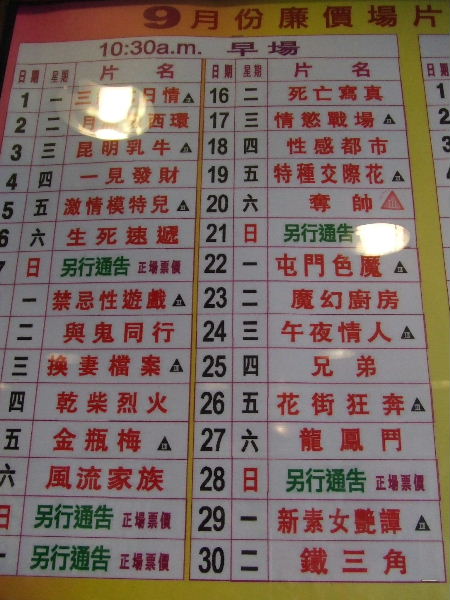 9月份廉價場片
10:30a.m. 早場
日期 星期 片名 日期 星期 片名
1 一 三 日情
2 二 月 西環
3 三 昆明乳牛
4 四 一見發財
5 五 激情模特兒
6 六 生死速遞
7 日 另行通告 正場票價
一 禁忌性遊戲
二 與鬼同行
三 換妻檔案
四 乾柴烈火
五 金瓶梅
六 風流家族
日 另行通告 正場票價
一 另行通告 正場票價
16 二 死亡寫真
17 三 情慾戰場
18 四 性感都市
19 五 特種交際花
20 六 奪帥
21 日 另行通告
22 一 屯門色魔
23 二 魔幻廚房
24 三 午夜情人
25 四 兄弟
26 五 花街狂奔
27 六 龍鳳鬥
28 日 另行通告 正場票價
29 一 新素女艷譚
30 二 鐵三角
1
2
3
4
5